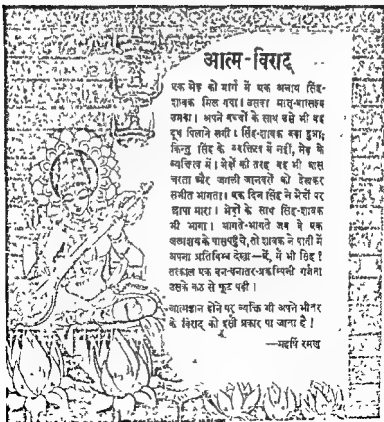 आत्म-विराट्
एक भेड़ को मार्ग में एक अनाथ सिंह-
शावक मिल गया। उसका मातृ-वात्सल्य
उमड़ा। अपने बच्चों के साथ उसे भी वह
दूध पिलाने लगी। सिंह-शावक बड़ा हुआ;
किन्तु सिंह के व्यक्तित्व में नहीं, भेड़ के
व्यक्तित्व में। भेड़ों की तरह वह भी घास
चरता और जंगली जानवरों को देखकर
सभीत भागता। एक दिन सिंह ने भेड़ों पर
छापा मारा। भेड़ों के साथ सिंह-शावक
भी भागा। भागते-भागते जब वे एक
जलाशय के पास पहुंचे, तो शावक ने पानी में
अपना प्रतिबिम्ब देखा—हैं, मैं भी सिंह!
तत्काल एक वन-वनांतर-प्रकम्पिनी गर्जना
उसके कंठ से फूट पड़ी।
आत्मज्ञान होने पर व्यक्ति भी अपने भीतर
के विराट् को इसी प्रकार पा जाता है!
—महर्षि रमण